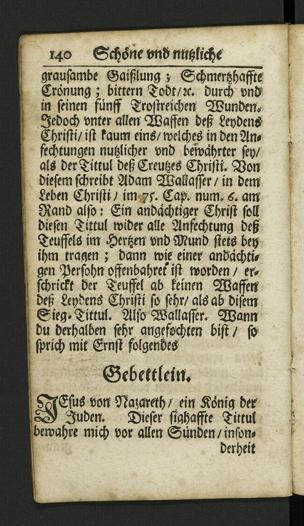 140 Schöne vnd nutzliche
grausambe Gaißlung; Schmertzhaffte
Crönung; bittern Todt/ꝛc. durch vnd
in seinen fünff Trostreichen Wunden.
Jedoch vnter allen Waffen deß Leydens
Christi/ ist kaum eins/ welches in den An-
fechtungen nutzlicher vnd bewährter sey/
als der Tittul deß Creutzes Christi. Von
diesem schreibt Adam Wallasser/ in dem
Leben Christi/ im 75. Cap. num. 6. am
Rand also: Ein andächtiger Christ soll
diesen Tittul wider alle Anfechtung deß
Teuffels im Hertzen vnd Mund stets bey
ihm tragen; dann wie einer andächti-
gen Persohn offenbahret ist worden/ er-
schrickt der Teuffel ab keinen Waffen
deß Leydens Christi so sehr/ als ab disem
Sieg-Tittul. Also Wallasser. Wann
du derhalben sehr angefochten bist/ so
sprich mit Ernst folgendes
Gebettlein.
JEsus von Nazareth/ ein König der
Juden. Dieser sighaffte Tittul
bewahre mich vor allen Sünden/ inson-
derheit